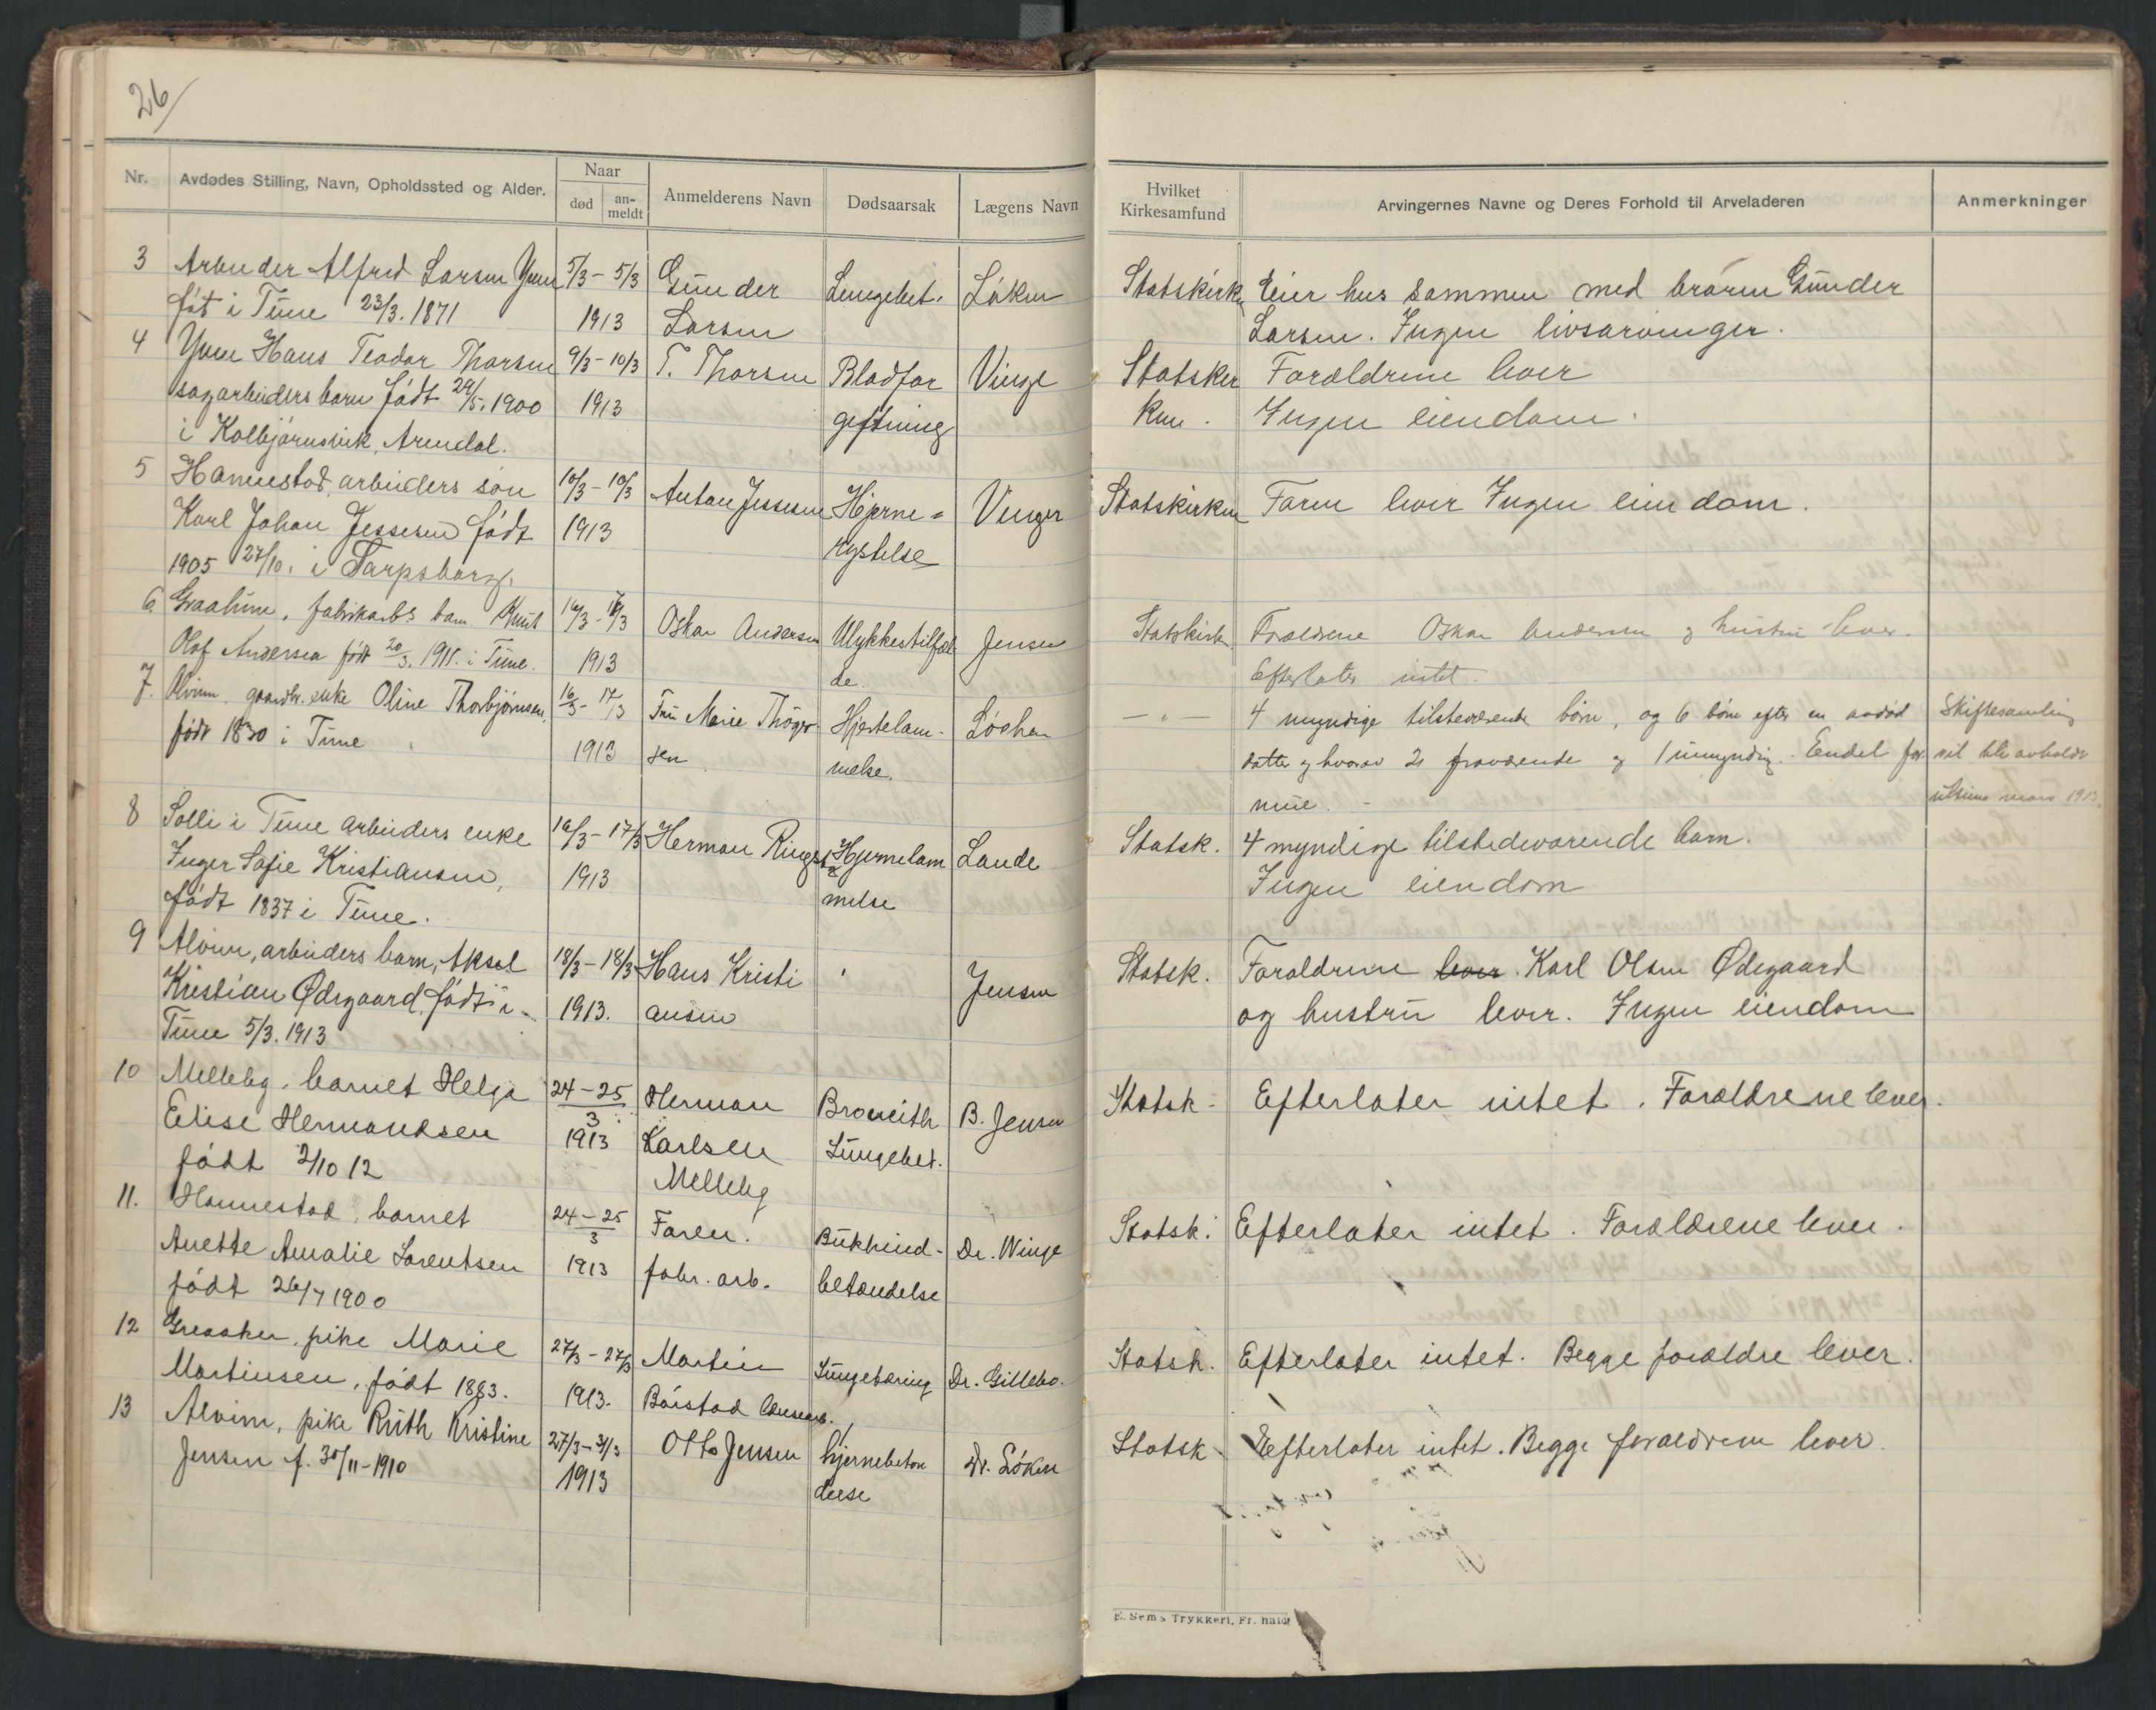 26/
Nr. Avdødes Stilling, Navn, Opholdssted og Alder. Naar død an-meldt Anmelderens Navn Dødsaarsak Lægens Navn Hvilket Kirkesamfund Arvingernes Navne og Deres Forhold til Arveladeren Anmerkninger
3 Arbeider Alfred Larsen 5/3 - 5/3 Gunder Lungebet. Løken Statskirk Eier hus sammen med broren Gunder
føt i Tune 23/3. 1871 1913 Larsen Larsen. Ingen livsarvinger.
4 Hans Teodor Thorsen 9/3 - 10/3 T. Thorsen Blodfor Vinge Statskir Forældrene lever
sagarbeiders barn født 29/5. 1900 1913 giftning ken. Ingen eiendom.
i Kolbjørnsvik, Arendal.
5 Hannestad, arbeiders søn 10/3 - 10/3 Anton Jessesen Hjerne= Vinger Statskirken Faren lever Ingen eiendom.
Karl Johan Jessesen født 1913 rystelse
1905 27/10. i Sarpsborg.
6 Graalum, fabrikarbs barn Knut 16/3 - 17/3 Oskar Andersen Ulykkestilfæl Jensen Statskirk Forældrene Oskar Andersen og hustru lever.
Olof Andersen født 20/3. 1911. i Tune. 1913 de. Efterlater intet.
7. Alvim. gaardbr. enke Oline Thorbjørnsen, 16/3 - 17/3 Fru Marie Thøger- Hjertelam- Løchen — " — 4 myndige tilstedeværende børn, og 6 børn efter en avdød Skiftesamling
født 1830 i Tune 1913 sen melse. datter og hvorav 2 fraværende og 1 umyndig. Endel for- vil bli avholdt
mue. ultimo mars 1913.
8 Solli i Tune arbeiders enke 16/3 - 17/3 Herman Ringst Hjernelam Lande Statsk. 4 myndige tilstedeværende barn.
Inger Sofie Kristiansen, 1913 melse Ingen eiendom
født 1837 i Tune.
9 Alvim, arbeiders barn, Aksel 18/3 - 18/3 Hans Kristi Jensen Statsk. Forældrene lever. Karl Olsen Ødegaard
Kristian Ødegaard, født i 1913. ansen og hustru lever. Ingen eiendom
Tune 5/3. 1913
10 Melleby, barnet Helga 24 - 25/3 Herman Bronchith B. Jensen Statsk- Efterlater intet. Forældrene lever.
Elise Hermandsen 1913 Karlsen Lungebet.
født 2/10 12 Melleby
11. Hannestad, barnet 24 - 25/3 Faren. Bukhind- Dr. Winge Statsk. Efterlater intet. Forældrene lever.
Anette Amalie Lorentsen 1913 fabr. arb. betændelse
født 26/7 1900
12 Greaaker, pike Marie 27/3 - 27/3 Martin Lungetæring Dr. Gillebo. Statsk. Efterlater intet. Begge forældre lever.
Martinsen, født 1883. 1913. Børstad
13 Alvim, pike Ruth Kristine 27/3 - 31/3 Otto Jensen hjernebetæn Dr. Løken Statsk Efterlater intet. Begge forældrene lever.
Jensen f. 30/11-1910 1913 delse
E. Sems Trykkeri, Fr. hald